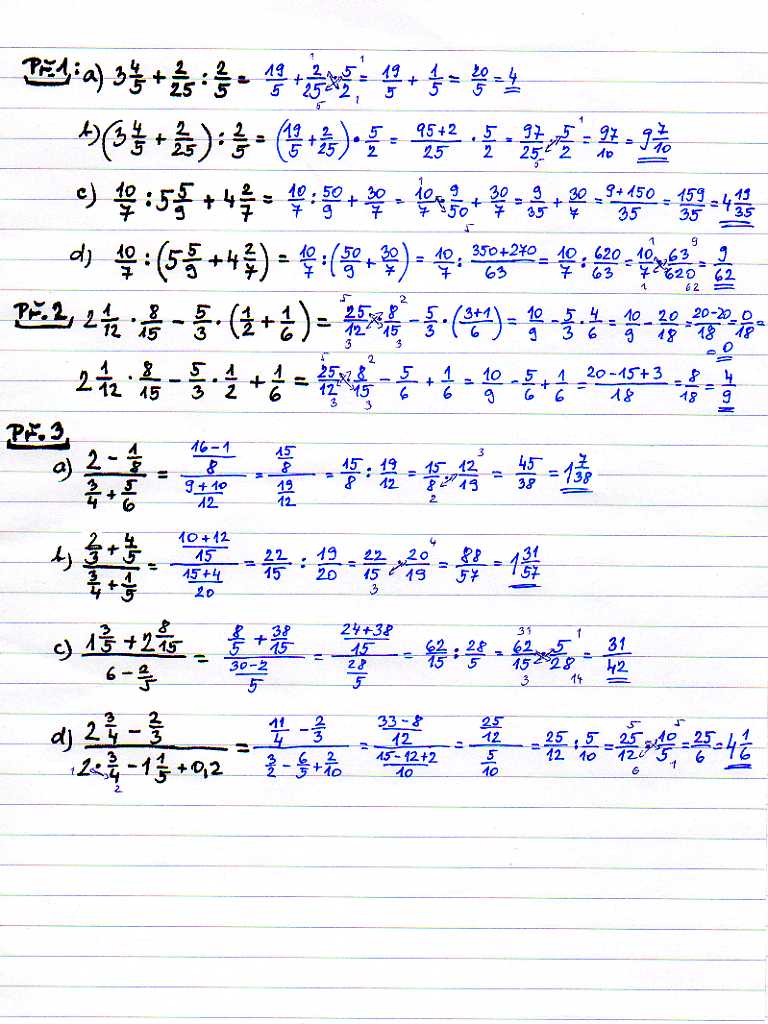 Př.1: a) 3 4/5 + 2/25 : 2/5 = 19/5 + 2/25 · 5/2 = 19/5 + 1/5 = 20/5 = 4
b) (3 4/5 + 2/25) : 2/5 = (19/5 + 2/25) · 5/2 = (95+2)/25 · 5/2 = 97/25 · 5/2 = 97/10 = 9 7/10
c) 10/7 : 5 5/9 + 4 2/7 = 10/7 : 50/9 + 30/7 = 10/7 · 9/50 + 30/7 = 9/35 + 30/7 = (9+150)/35 = 159/35 = 4 19/35
d) 10/7 : (5 5/9 + 4 2/7) = 10/7 : (50/9 + 30/7) = 10/7 : (350+270)/63 = 10/7 : 620/63 = 10/7 · 63/620 = 9/62
Př.2 2 1/12 · 8/15 − 5/3 · (1/2 + 1/6) = 25/12 · 8/15 − 5/3 · ((3+1)/6) = 10/9 − 5/3 · 4/6 = 10/9 − 20/18 = (20−20)/18 = 0/18 =
= 0
2 1/12 · 8/15 − 5/3 · 1/2 + 1/6 = 25/12 · 8/15 − 5/6 + 1/6 = 10/9 − 5/6 + 1/6 = (20−15+3)/18 = 8/18 = 4/9
Př.3
a) (2 − 1/8)/(3/4 + 5/6) = ((16−1)/8)/((9+10)/12) = (15/8)/(19/12) = 15/8 : 19/12 = 15/8 · 12/19 = 45/38 = 1 7/38
b) (2/3 + 4/5)/(3/4 + 1/5) = ((10+12)/15)/((15+4)/20) = 22/15 : 19/20 = 22/15 · 20/19 = 88/57 = 1 31/57
c) (1 3/5 + 2 8/15)/(6 − 2/5) = (8/5 + 38/15)/((30−2)/5) = ((24+38)/15)/(28/5) = 62/15 : 28/5 = 62/15 · 5/28 = 31/42
d) (2 3/4 − 2/3)/(2 · 3/4 − 1 1/5 + 0,2) = (11/4 − 2/3)/(3/2 − 6/5 + 2/10) = ((33−8)/12)/((15−12+2)/10) = (25/12)/(5/10) = 25/12 : 5/10 = 25/12 · 10/5 = 25/6 = 4 1/6